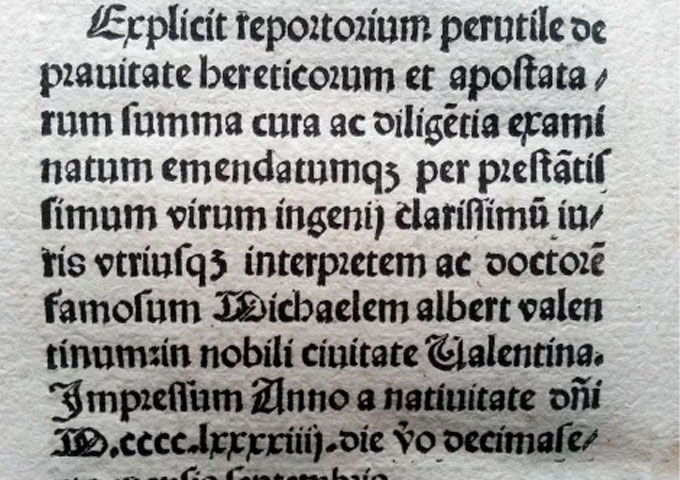 Explicit reportorium perutile de
prauitate hereticorum et apostata/
rum summa cura ac diligētia exami
natum emendatumqꝫ per prestātis
simum virum ingenij clarissimū iu/
ris vtriusqꝫ interpretem ac doctorē
famosum Michaelem albert valen
tinum:in nobili ciuitate Ualentina.
Impressum Anno a natiuitate dn̄i
M.cccc.lxxxxiiij.die v̊o decimase/
septembris